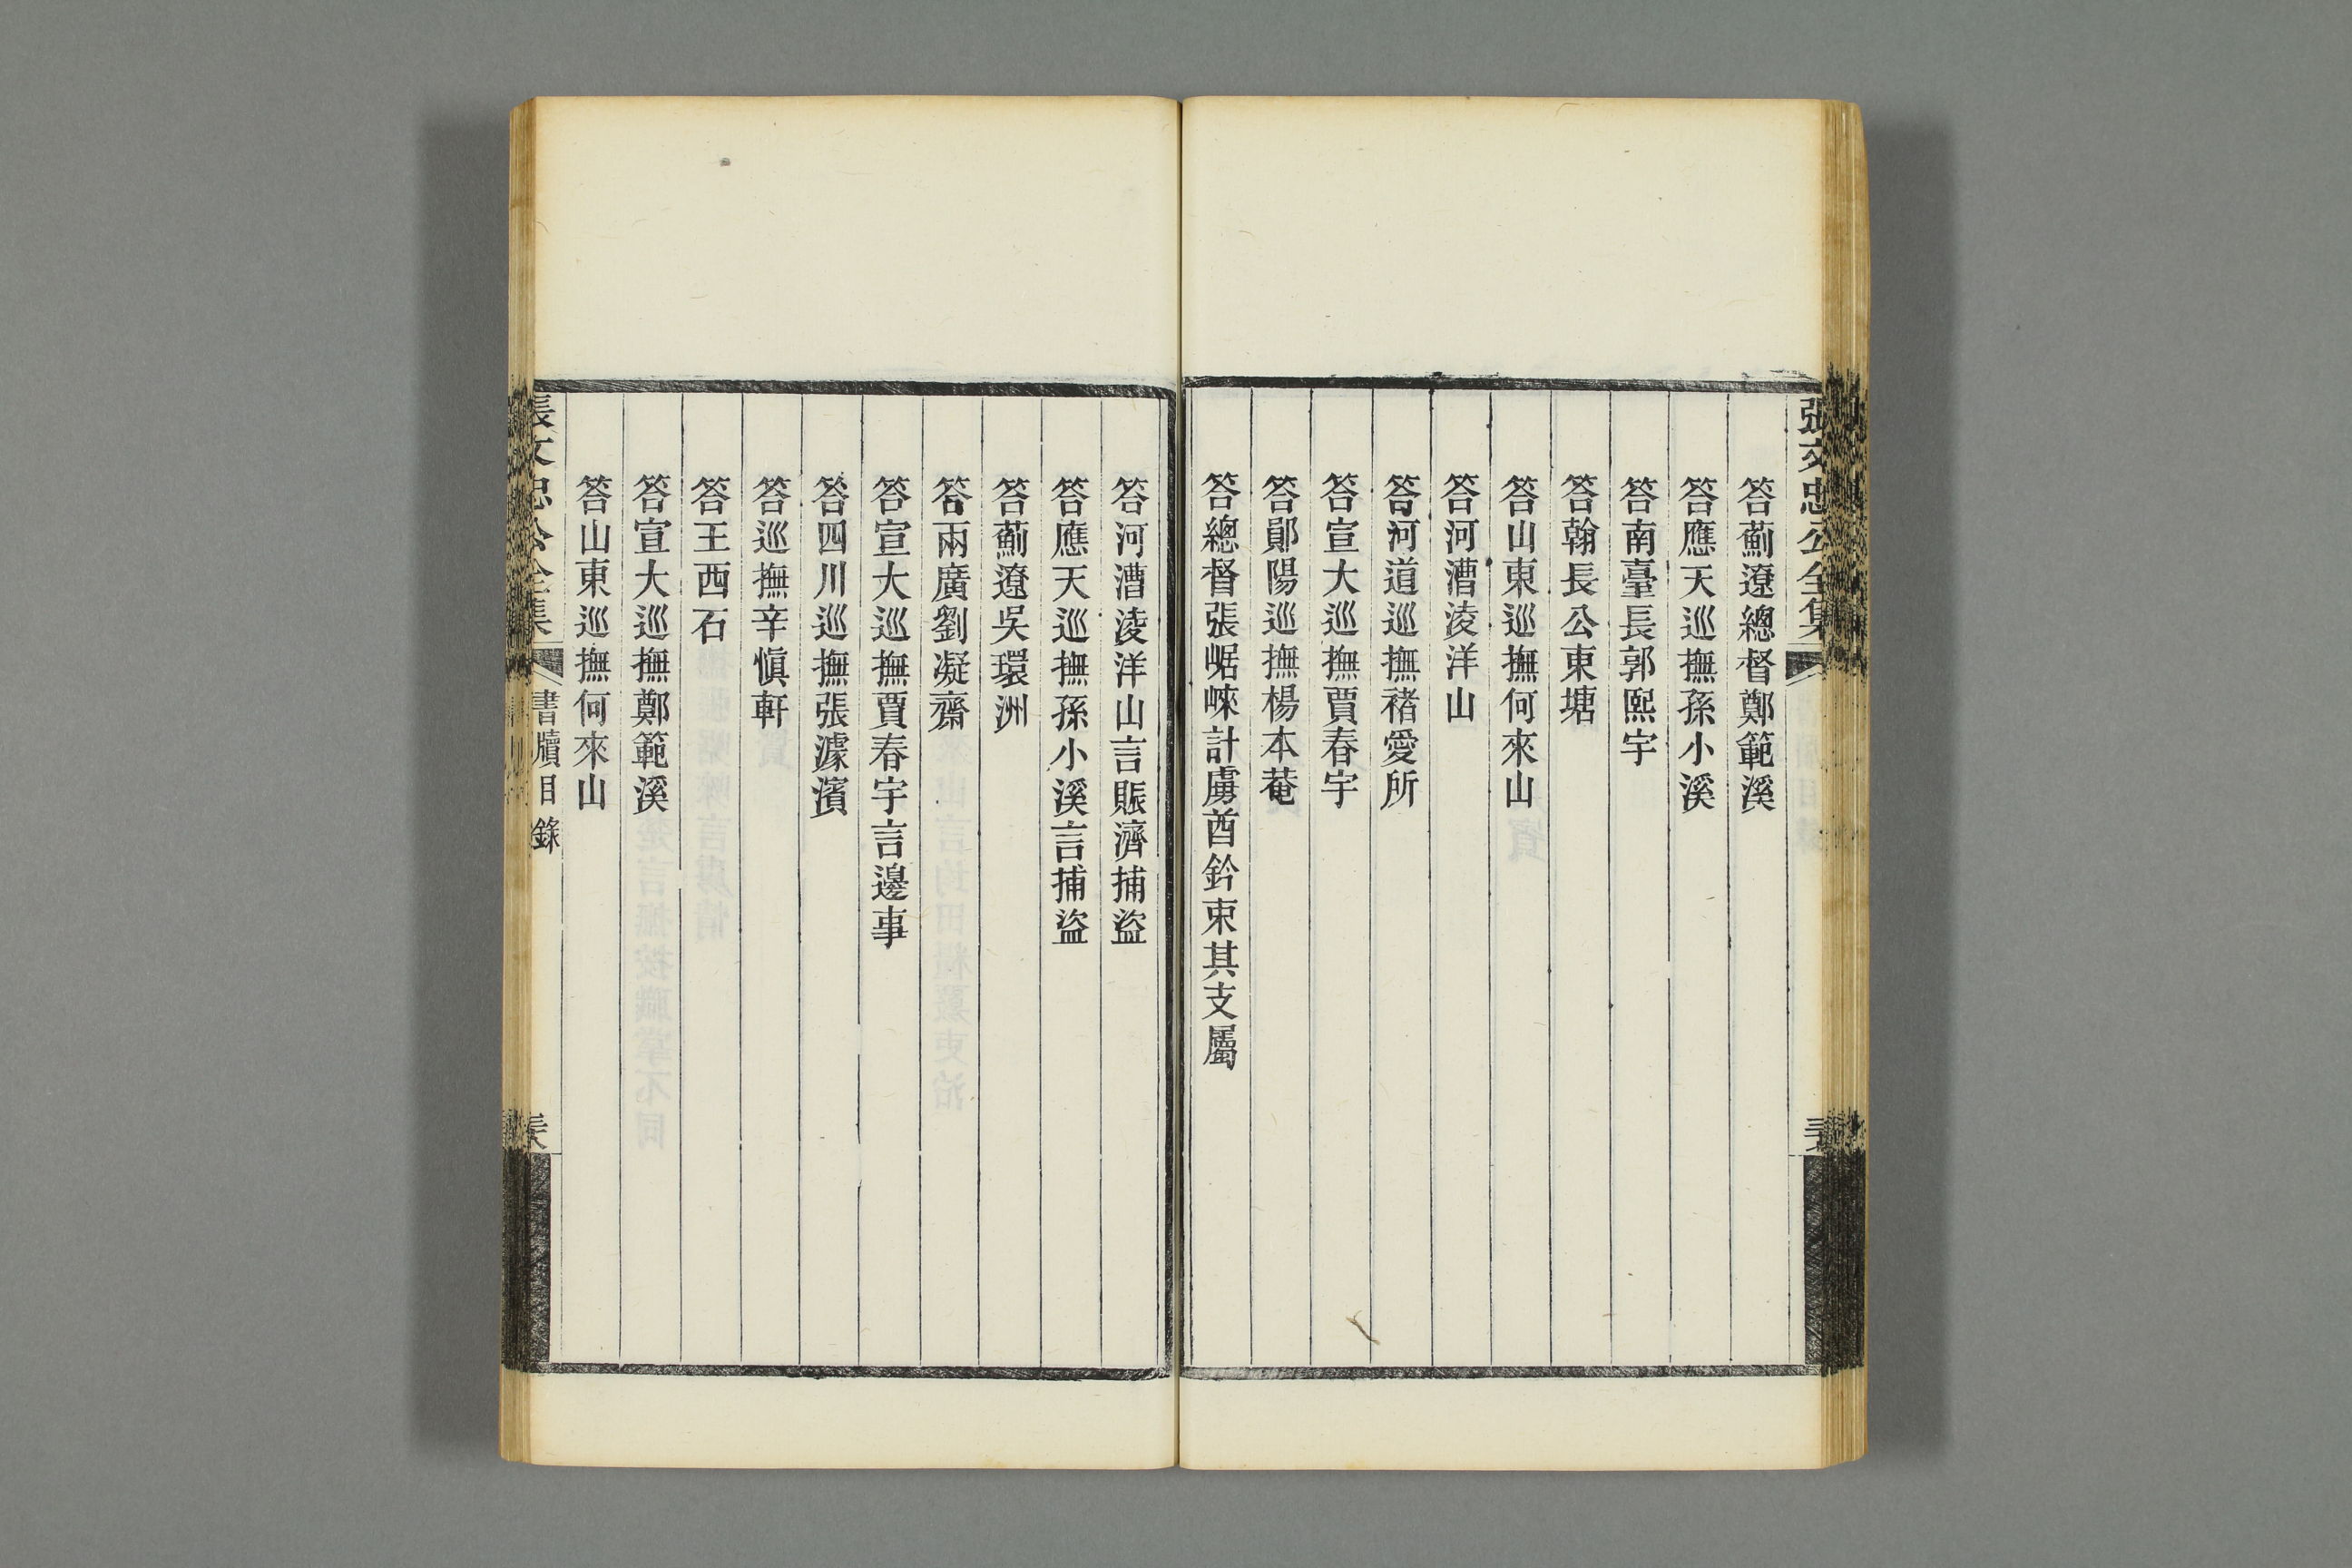 張文忠公全集
答薊遼總督鄭範溪
答應天巡撫孫小溪
答南臺長郭熙宇
答翰長公東塘
答山東巡撫何來山
答河漕淩洋山
答河道巡撫褚愛所
答宣大巡撫賈春宇
答鄖陽巡撫楊本菴
答總督張崌崍計虜酋鈐束其支屬
答河漕淩洋山言賑濟捕盜
答應天巡撫孫小溪言捕盜
答薊遼吳環洲
答兩廣劉凝齋
答宣大巡撫賈春宇言邊事
答四川巡撫張濾濱
答巡撫辛慎軒
答王西石
答宣大巡撫鄭範溪
答山東巡撫何來山
張文忠公全集 書牘目錄